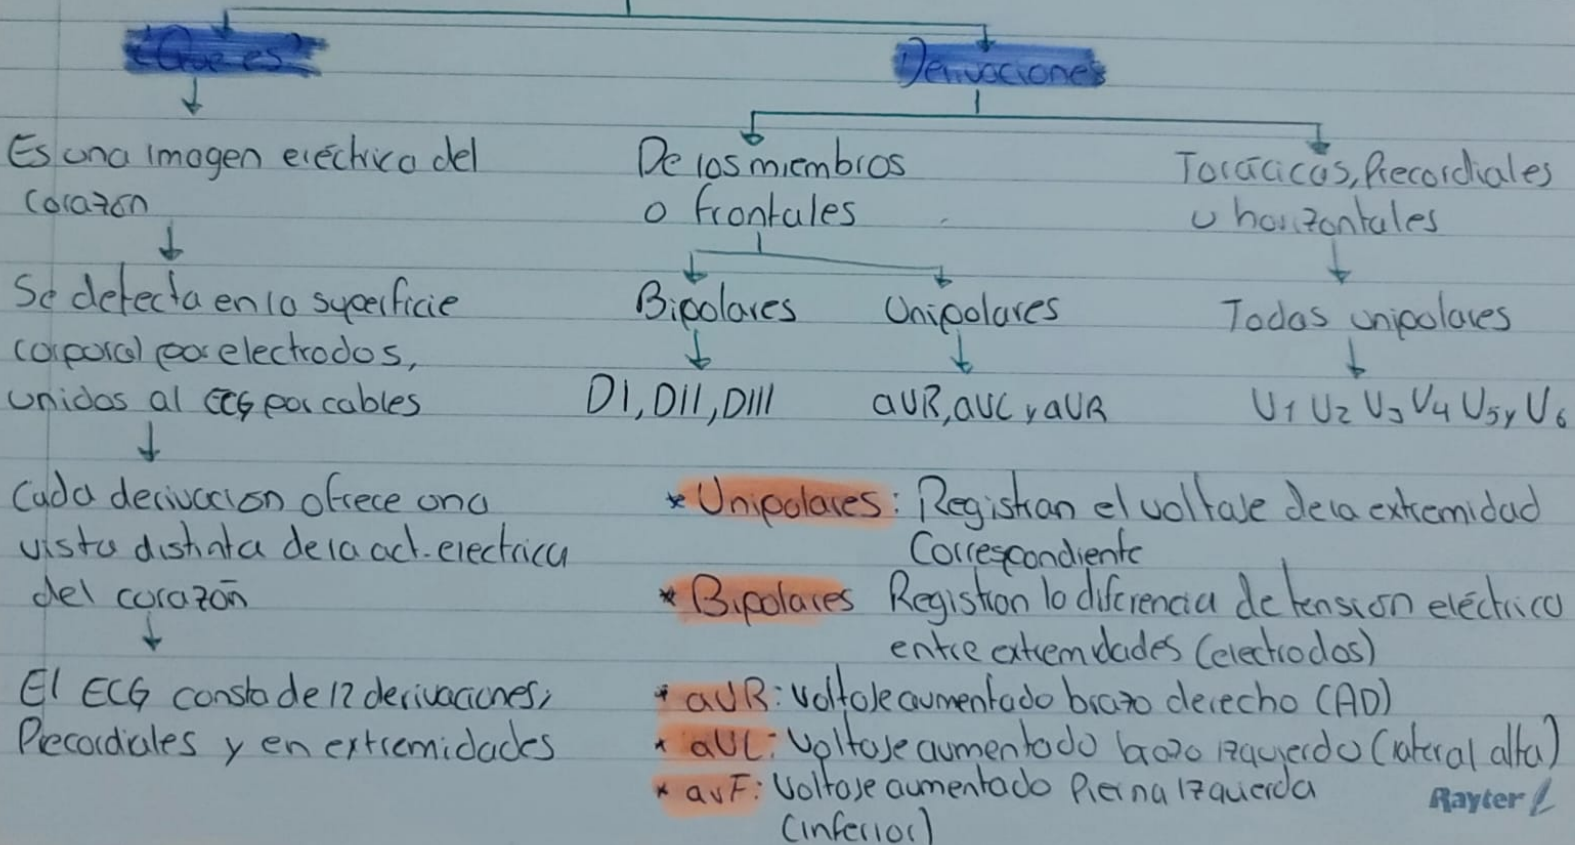 ¿Que es?
Es una imagen eléctrica del
corazón
Se detecta en la superficie
corporal por electrodos,
unidos al ECG por cables
Cada derivacion ofrece una
vista distinta de la act. electrica
del corazón
El ECG consta de 12 derivaciones,
Precordiales y en extremidades
Derivaciones
De los miembros
o frontales
Bipolares
DI, DII, DIII
Unipolares
aVR, aVL y aVR
Torácicas, Precordiales
u horizontales
Todas unipolares
V1 V2 V3 V4 V5 y V6
* Unipolares: Registran el voltaje de la extremidad
Correspondiente
* Bipolares Registran la diferencia de tensión eléctrica
entre extremidades (electrodos)
* aVR: voltaje aumentado brazo derecho (AD)
* aVL: Voltaje aumentado brazo izquierdo (lateral alta)
* avF: Voltaje aumentado Pierna izquierda
(inferior)
Rayter